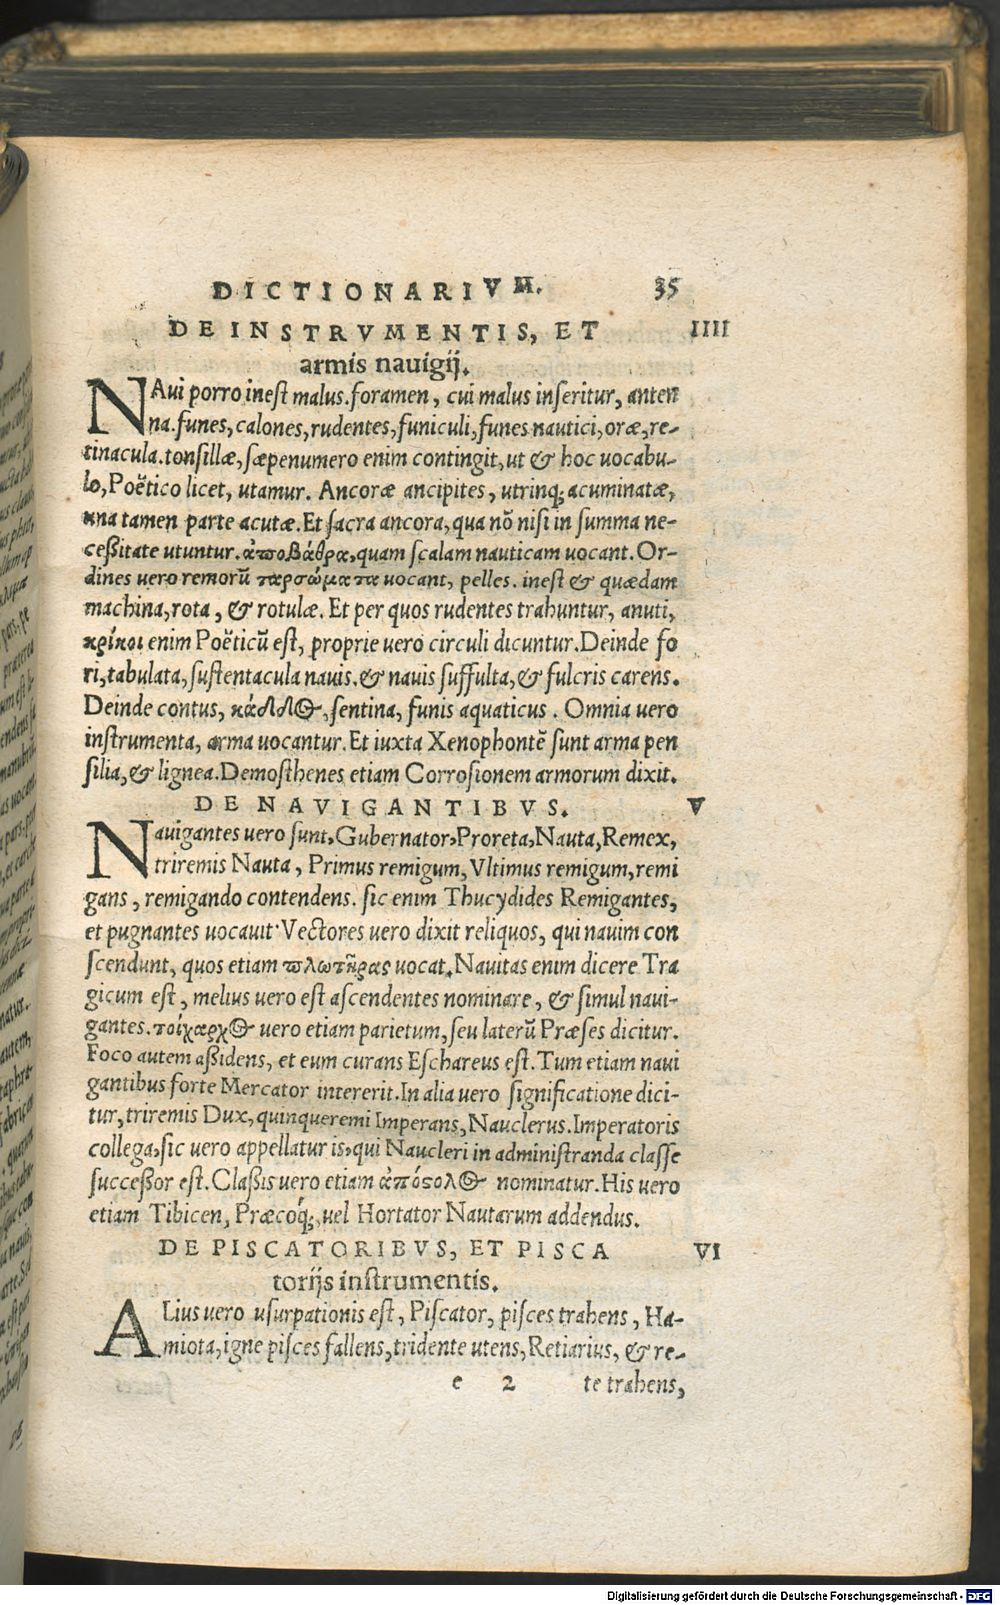 DICTIONARIVM. 35
DE INSTRVMENTIS, ET IIII
armis nauigij.
NAui porro inest malus. foramen, cui malus inseritur, anten
na. funes, calones, rudentes, funiculi, funes nautici, oræ, re-
tinacula. tonsillæ, sæpenumero enim contingit, ut & hoc uocabu-
lo, Poëtico licet, utamur. Ancoræ ancipites, utrinq; acuminatæ,
una tamen parte acutæ. Et sacra ancora, qua nō nisi in summa ne-
cessitate utuntur. ἀποβάθρα, quam scalam nauticam uocant. Or-
dines uero remorū ταρσώματα uocant, pelles. inest & quædam
machina, rota, & rotulæ. Et per quos rudentes trahuntur, anuli,
κρίκοι enim Poëticū est, proprie uero circuli dicuntur. Deinde fo
ri, tabulata, sustentacula nauis. & nauis suffulta, & fulcris carens.
Deinde contus, κάλλος, sentina, funis aquaticus. Omnia uero
instrumenta, arma uocantur. Et iuxta Xenophontē sunt arma pen
silia, & lignea. Demosthenes etiam Corrosionem armorum dixit.
DE NAVIGANTIBVS. V
Nauigantes uero sunt, Gubernator, Proreta, Nauta, Remex,
triremis Nauta, Primus remigum, Vltimus remigum, remi
gans, remigando contendens. sic enim Thucydides Remigantes,
et pugnantes uocauit. Vectores uero dixit reliquos, qui nauim con
scendunt, quos etiam πλωτῆρας uocat. Nauitas enim dicere Tra
gicum est, melius uero est ascendentes nominare, & simul naui-
gantes. τοίχαρχος uero etiam parietum, seu laterū Præses dicitur.
Foco autem assidens, et eum curans Eschareus est. Tum etiam naui
gantibus forte Mercator intererit. In alia uero significatione dici-
tur, triremis Dux, quinqueremi Imperans, Nauclerus. Imperatoris
collega, sic uero appellatur is, qui Naucleri in administranda classe
successor est. Classis uero etiam ἀπόστολος nominatur. His uero
etiam Tibicen, Præcoq́;, uel Hortator Nautarum addendus.
DE PISCATORIBVS, ET PISCA VI
torijs instrumentis.
ALius uero usurpationis est, Piscator, pisces trahens, Ha-
miota, igne pisces fallens, tridente utens, Retiarius, & re-
e 2 te trahens,
Digitalisierung gefördert durch die Deutsche Forschungsgemeinschaft - DFG